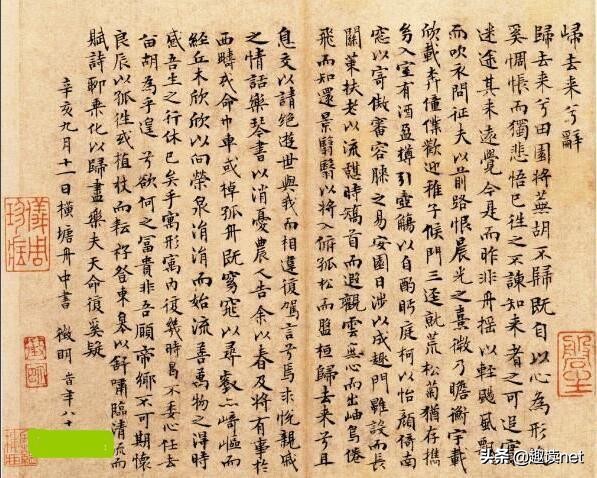 歸去来兮辭
歸去来兮田園将蕪胡不歸既自以心為形
奚惆悵而獨悲悟已往之不諫知来者之可追實
迷途其未遠覺今是而昨非舟摇以軽颺風飄
而吹衣問征夫以前路恨晨光之熹微乃瞻衡宇載
欣載奔僮僕歡迎稚子候門三逕就荒松菊猶存携
幼入室有酒盈樽引壺觴以自酌眄庭柯以怡顔倚南
窓以寄傲審容膝之易安園日涉以成趣門雖設而長
關策扶老以流憇時矯首而遐觀雲無心而出岫鳥倦
飛而知還景翳翳以将入撫孤松而盤桓歸去来兮且
息交以請絶遊世與我而相違復駕言兮焉求悦親戚
之情話樂琴書以消憂農人告余以春及将有事於
西疇或命巾車或棹孤舟既窈窕以尋壑亦崎嶇而
經丘木欣欣以向榮泉涓涓而始流善萬物之得時
感吾生之行休已矣乎寓形宇内復幾時曷不委心任去
留胡為乎遑遑兮欲何之富貴非吾願帝鄉不可期懷
良辰以孤往或植杖而耘耔登東皋以舒嘯臨清流而
賦詩聊乗化以歸盡樂夫天命復奚疑
辛亥九月十二日横塘舟中書 徵明 時年八十
头条 @趣读net